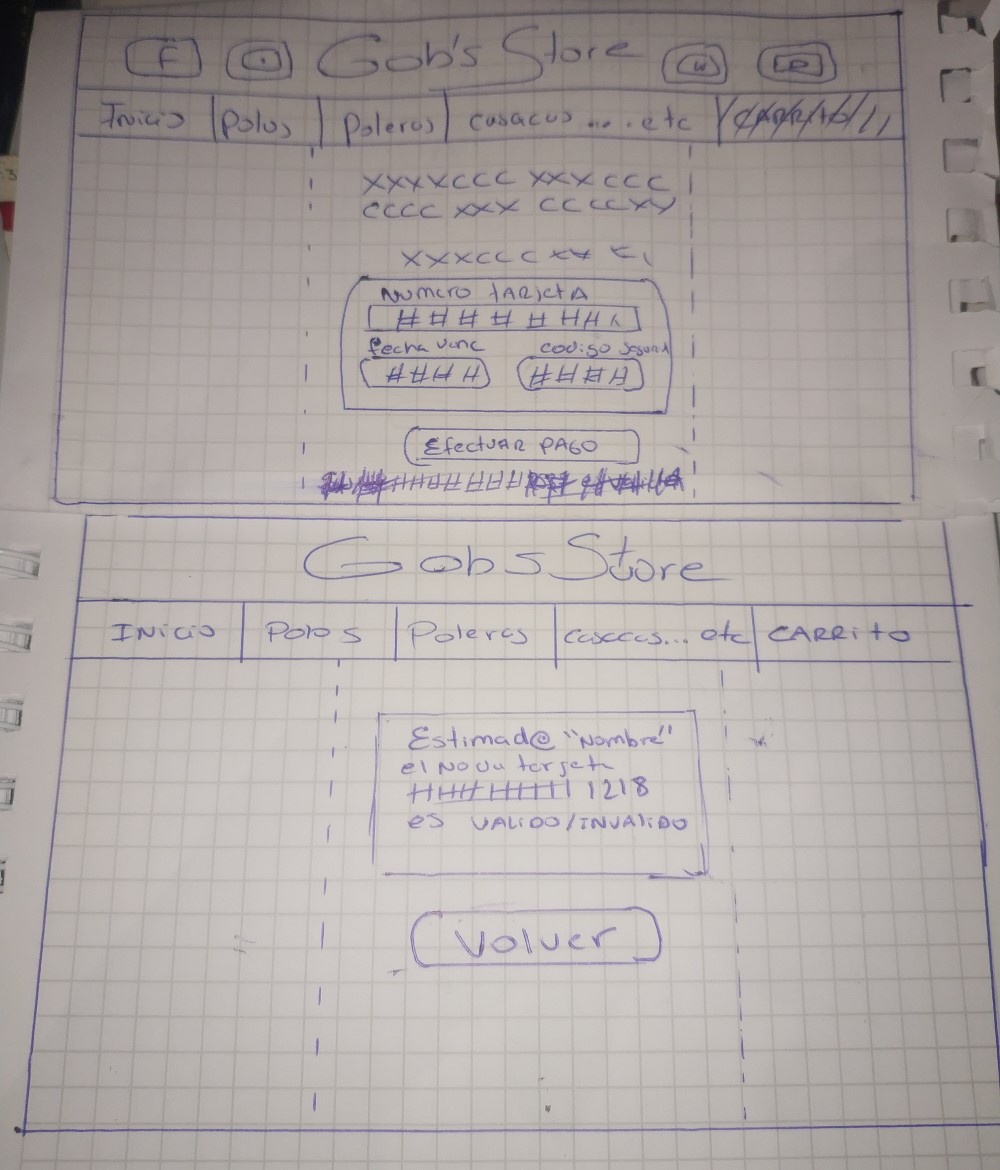 F Gob's Store W
Inicio Polos Poleras casacas....etc
XXXXCCC XXX CCC
CCCC XXX CCCCXX
XXXCCC XX
Numero tARjetA
# # # # # # #
fecha venc codigo segurid
#### ####
EfectuAR PAGO
Gobs Store
INicio Polos Poleras casacas... etc CARRito
Estimad@ "Nombre"
el
1218
es VALIDO/INVALIDO
Volver